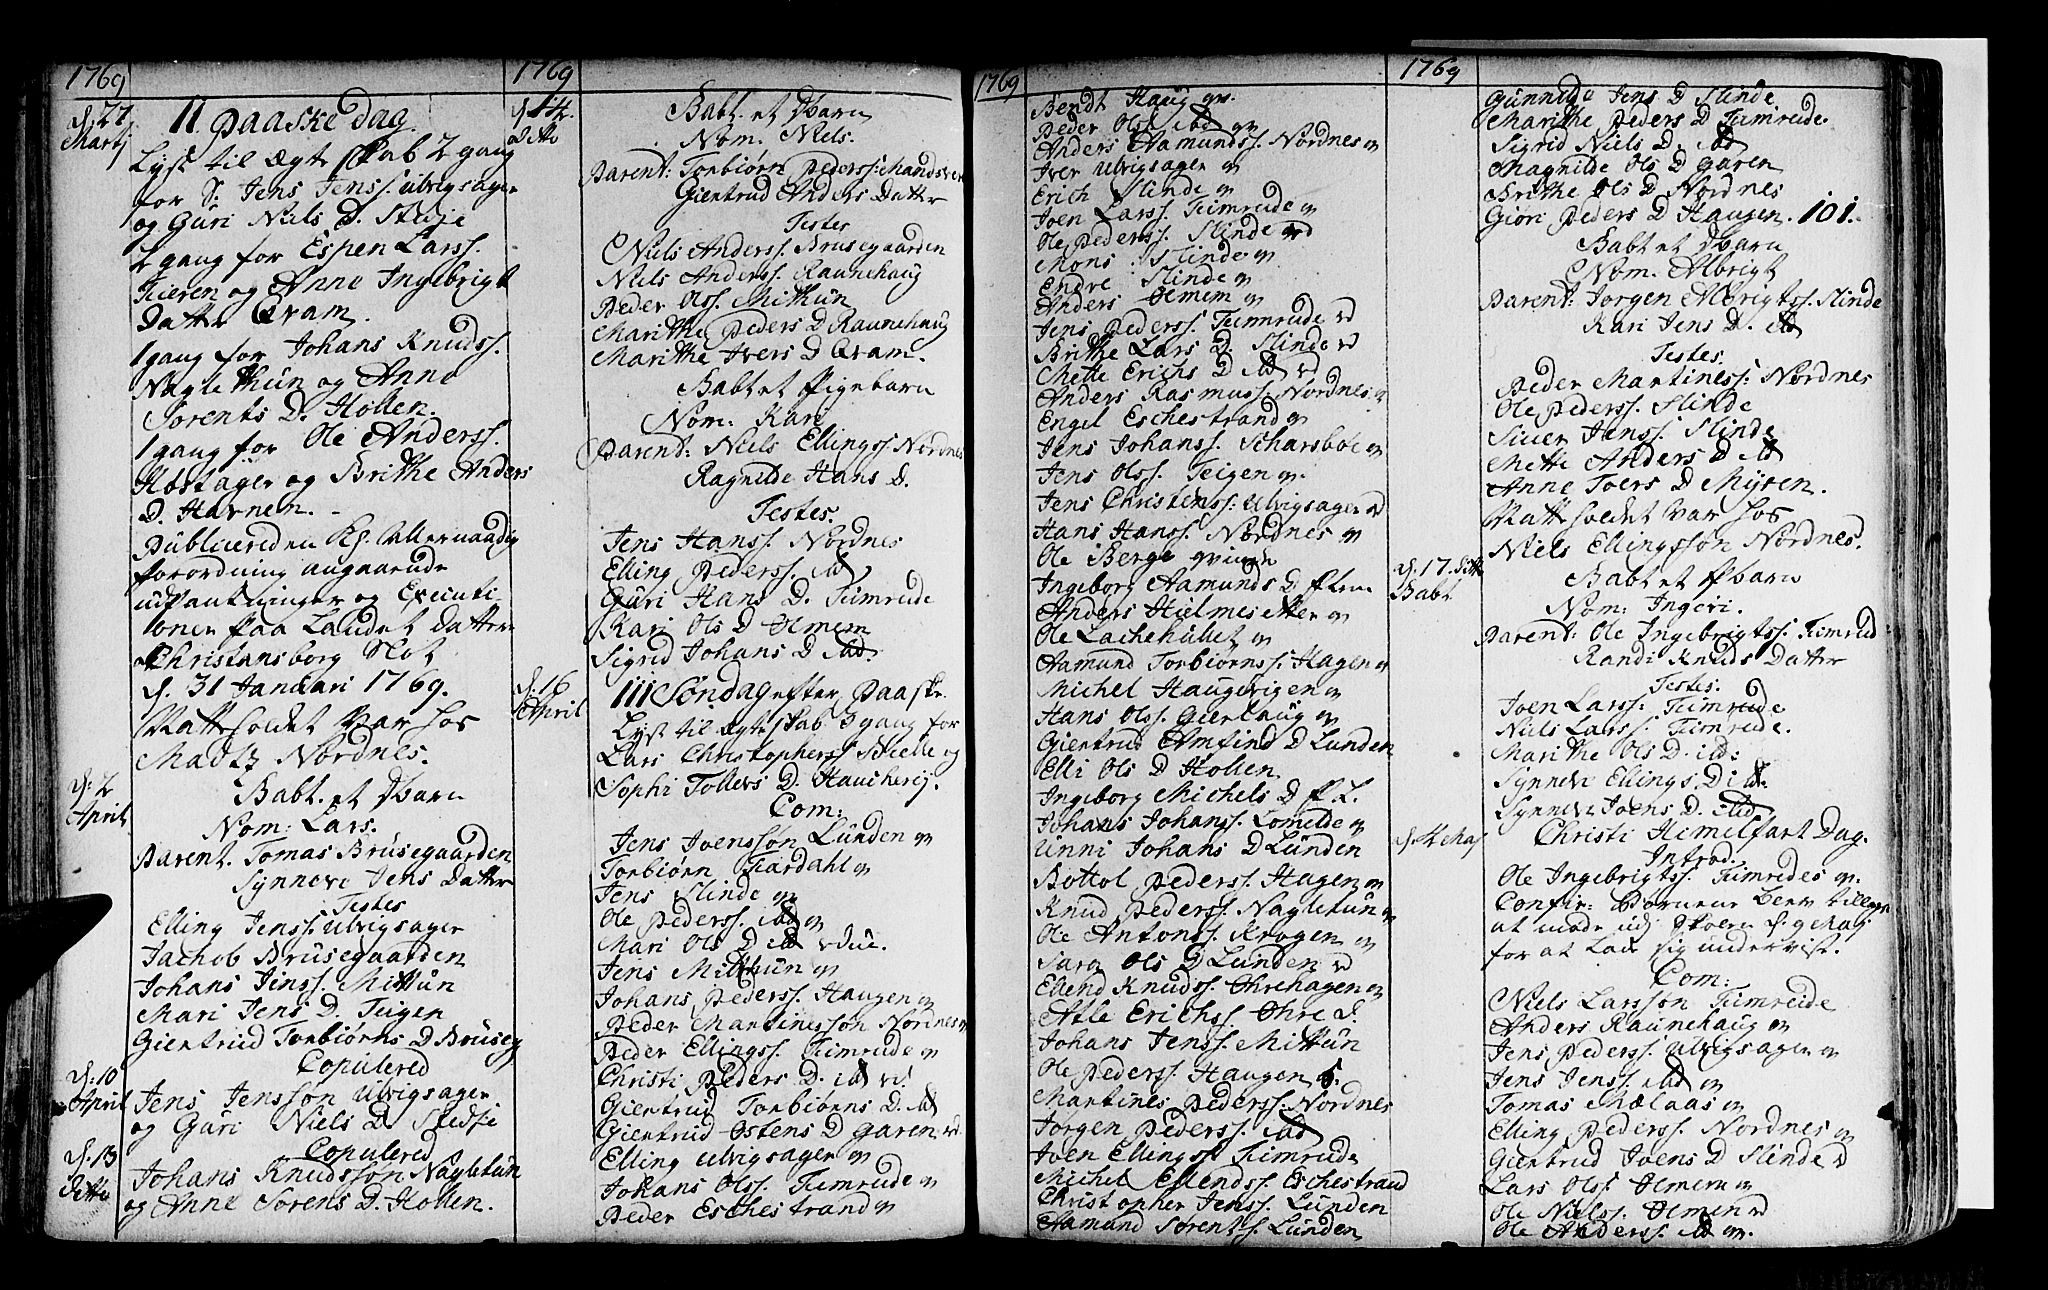 1769
d: 27 Martj
11 Paaske dag.
Lyst til Ægteskab 2 gang
for S: Jens Jenss: Ulvigsager
og Guri Niels D. Stedje
2 gang for Espen Larss.
og Anne Ingebrigt
Datter Qvam.
1 gang for Johans Knudss.
Naglethun og Anne
Sorents D. Hollen.
1 gang for Ole Anderss.
og Brithe Anders
D. Havnen.
Publicereden Kg. Allernaadig
forordning angaaende
udpantninger og Executi
oner paa Landet dattere
Christiansborg Slot
d. 31 Januari 1769.
Natteholdet var hos
Madtz Nordnes.
d: 2 April
Babt. et dbarn
Nom: Lars.
Parent. Tomas Brusegaarden
Synneve Jens Datter
Testes
Elling Jenss. Ulvigsager
Jachob Brusegaarden
Johans Jenss. Mittun
Mari Jens D. Teigen
Giertrud Torbiørns D Bruseg
d: 10 April
Copulered
Jens Jensson Ulvigsager
og Guri Niels D Stedje
d. 13 ditto
Copulered
Johans Knudsson Nagletun
og Anne Sorens D. Hollen.
1769
d. 14. ditto
Babt. et dbarn
Nom. Niels.
Parent: Torbiørn Pederss:
Giertrud Anders Datter
Testes
Niels Anderss. Brusegaarden
Niels Anderss. Raunehaug
Peder Olss. Mithun
Marithe Peders D Raunehaug
Marithe Ivers D Qvam.
Babt et Pigebarn
Nom: Kari
Parent: Niels Ellingss Nordnes
Ragnilde Hans D.
Testes.
Jens Hanss. Nordnes
Elling Pederss. ibd
Guri Hans D. Timrude
Kari Ols D Ømem
Sigrid Johans D ibd.
d: 16 April
111 Søndag efter Paaske
Lyst til Ægteskab 3 gang for
Lars Christopherss. og
Sophi Tollevs D.
Com:
Jens Joensson Lunden m
Torbiørn Fardahl m
Jens Slinde m
Ole Pederss. ibd m
Mari Ols D ibd vdue.
Jens Mithun m
Johans Pederss. Haugen m
Peder Martinesson Nordnes m
Peder Ellingss. Timrude m
Christi Peders D. ibd vd.
Giertrud Torbiørns D. ibd
Giertrud Østens D Garen vd
Elling Ulvigsager m
Johans Olss. Timrude m
Peder Eschestrand m
1769
Bendt Haug m.
Peder Olss. ibd m
Anders Aamundss. Nordnes m
Iver Ulvigsager m
Erich Slinde m
Joen Larss. Timrude m
Ole Pederss. Slinde vd
Mons Slinde m
Endre Slinde m
Anders Ømem m
Jens Pederss. Timrude vd
Brithe Lars D. Slinde vd
Mette Erichs D ibd vd
Anders Rasmuss. Nordnes m
Engel Eschestrand m
Jens Johanss. Scharsboe m
Jens Olss. Teigen m.
Jens Christenss: Ulvigsager vd
Hans Hanss. Nordnes m
Ole Berge
Ingeborg Aamunds D
Anders Hielmeseter m
Ole m
Aamund Torbiørnss. Hagen m
Michel m
Hans Olss. Gierhaug m
Giertrud Amfind D Lunden
Elli Ols D Hollen
Ingeborg Michels D
Johans Johanss. Lomelde m
Unni Johans D Lunden
Bottol Pederss. Hagen m
Knud Pederss. Nagletun m
Ole Antonss. Krogen m
Sara Ols D Lunden vd
Ellend Knudss. Øhrehagen m
Atle Erichss Øhre
Johans Jenss. Mittun
Ole Pederss. Haugen
Martines Pederss. Nordnes
Jørgen Pederss. ibd
Joen Ellingss Timrude
Michel Ellendss Eschestrand
Christopher Jenss. Lunden
Aamund Sørentss. Lunden
1769
Gunnilde Jens D Slinde
Marithe Peders D Timrude.
Sigrid Niels D. ibd
Magnilde Ols D Garen
Brithe Ols D Nordnes
Giori Peders D Haugen. 101.
Babt et dbarn
Nom. Albrigt
Parent: Jorgen Albrigtss. Slinde
Kari Jens D. ibd
Testes.
Peder Martiness: Nordnes
Ole Pederss. Slinde
Siver Jenss. Slinde
Mette Anders D ibd
Anne Joers D Myren.
Natteholdet var hos
Niels Ellingsson Nordnes.
d. 17. ditto Babt
Babt et Pbarn
Nom: Ingeri.
Parent: Ole Ingebrigtss. Timrud
Randi Knuds Datter
Testes.
Joen Larss. Timrude
Niels Larss. Timrude.
Marithe Ols D. ibd:
Synneve Ellings D: ibd.
Synneve Joens D. ibd
d. 4 Maj
Christi Himelfart Dag.
Introd.
Ole Ingebrigtss. Timrudes m.
Confir: Børnene
at møde udj Skolen d. 9 Maj
for at lade sig undervise.
Com:
Niels Larsson Timrude
Anders Raunehaug m
Jens Pederss. Ulvigsager m
Jens Jenss. ibd m
Tomas Mælaas m
Elling Pederss. Nordnes m
Giertrud Joens D Slinde vd
Lars Olss. Ømem m
Ole Nielss. Ømen vd
Ole Anderss. ibd m.